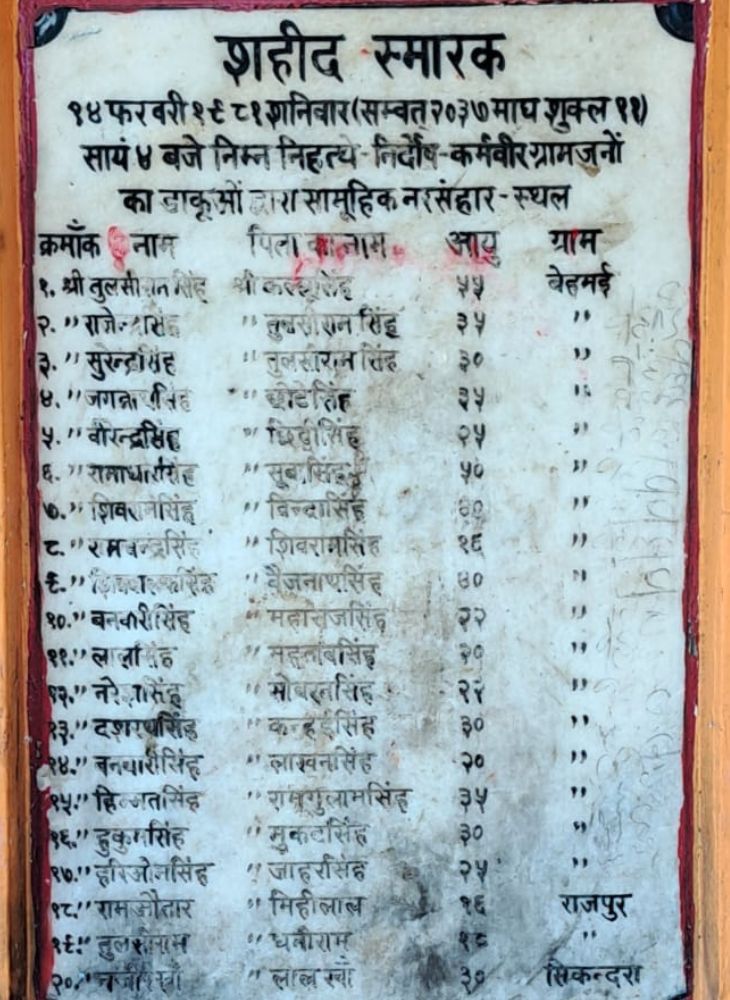 शहीद स्मारक
१४ फरवरी १९८१ शनिवार (सम्वत् २०३७ माघ शुक्ल ११)
सायं ४ बजे निम्न निहत्थे-निर्दोष-कर्मवीर ग्रामजनों
का डाकूओं द्वारा सामूहिक नरसंहार-स्थल
क्रमाँक नाम पिता का नाम आयु ग्राम
१. श्री तुलसीराम सिंह श्री ५५ बेहमई
२. " राजेन्द्रसिंह " तुलसीराम सिंह ३५ "
३. " सुरेन्द्रसिंह " तुलसीराम सिंह ३० "
४. " जगन्नाथसिंह " छोटेसिंह ३५ "
५. " वीरेन्द्रसिंह " २५ "
६. " रामाधारसिंह " ५० "
७. " शिवरामसिंह " विन्दासिंह ४० "
८. " रामचन्द्रसिंह " शिवरामसिंह १६ "
९. " " वैजनाथसिंह ४० "
१०. " बनवारीसिंह " महाराजसिंह २२ "
११. " लालसिंह " महताबसिंह २० "
१२. " नरेशसिंह " सोबरनसिंह २२ "
१३. " दशरथसिंह " कन्हईसिंह ३० "
१४. " बनवारीसिंह " लाखनसिंह २० "
१५. " हिम्मतसिंह " रामगुलामसिंह ३५ "
१६. " हुकुमसिंह " मुकटसिंह ३० "
१७. " हरिओमसिंह " जाहरसिंह २५ "
१८. " रामऔतार " मिहीलाल १६ राजपुर
१९. " तुलसीराम " धनीराम १८ "
२०. " " लाल खाँ ३० सिकन्दरा